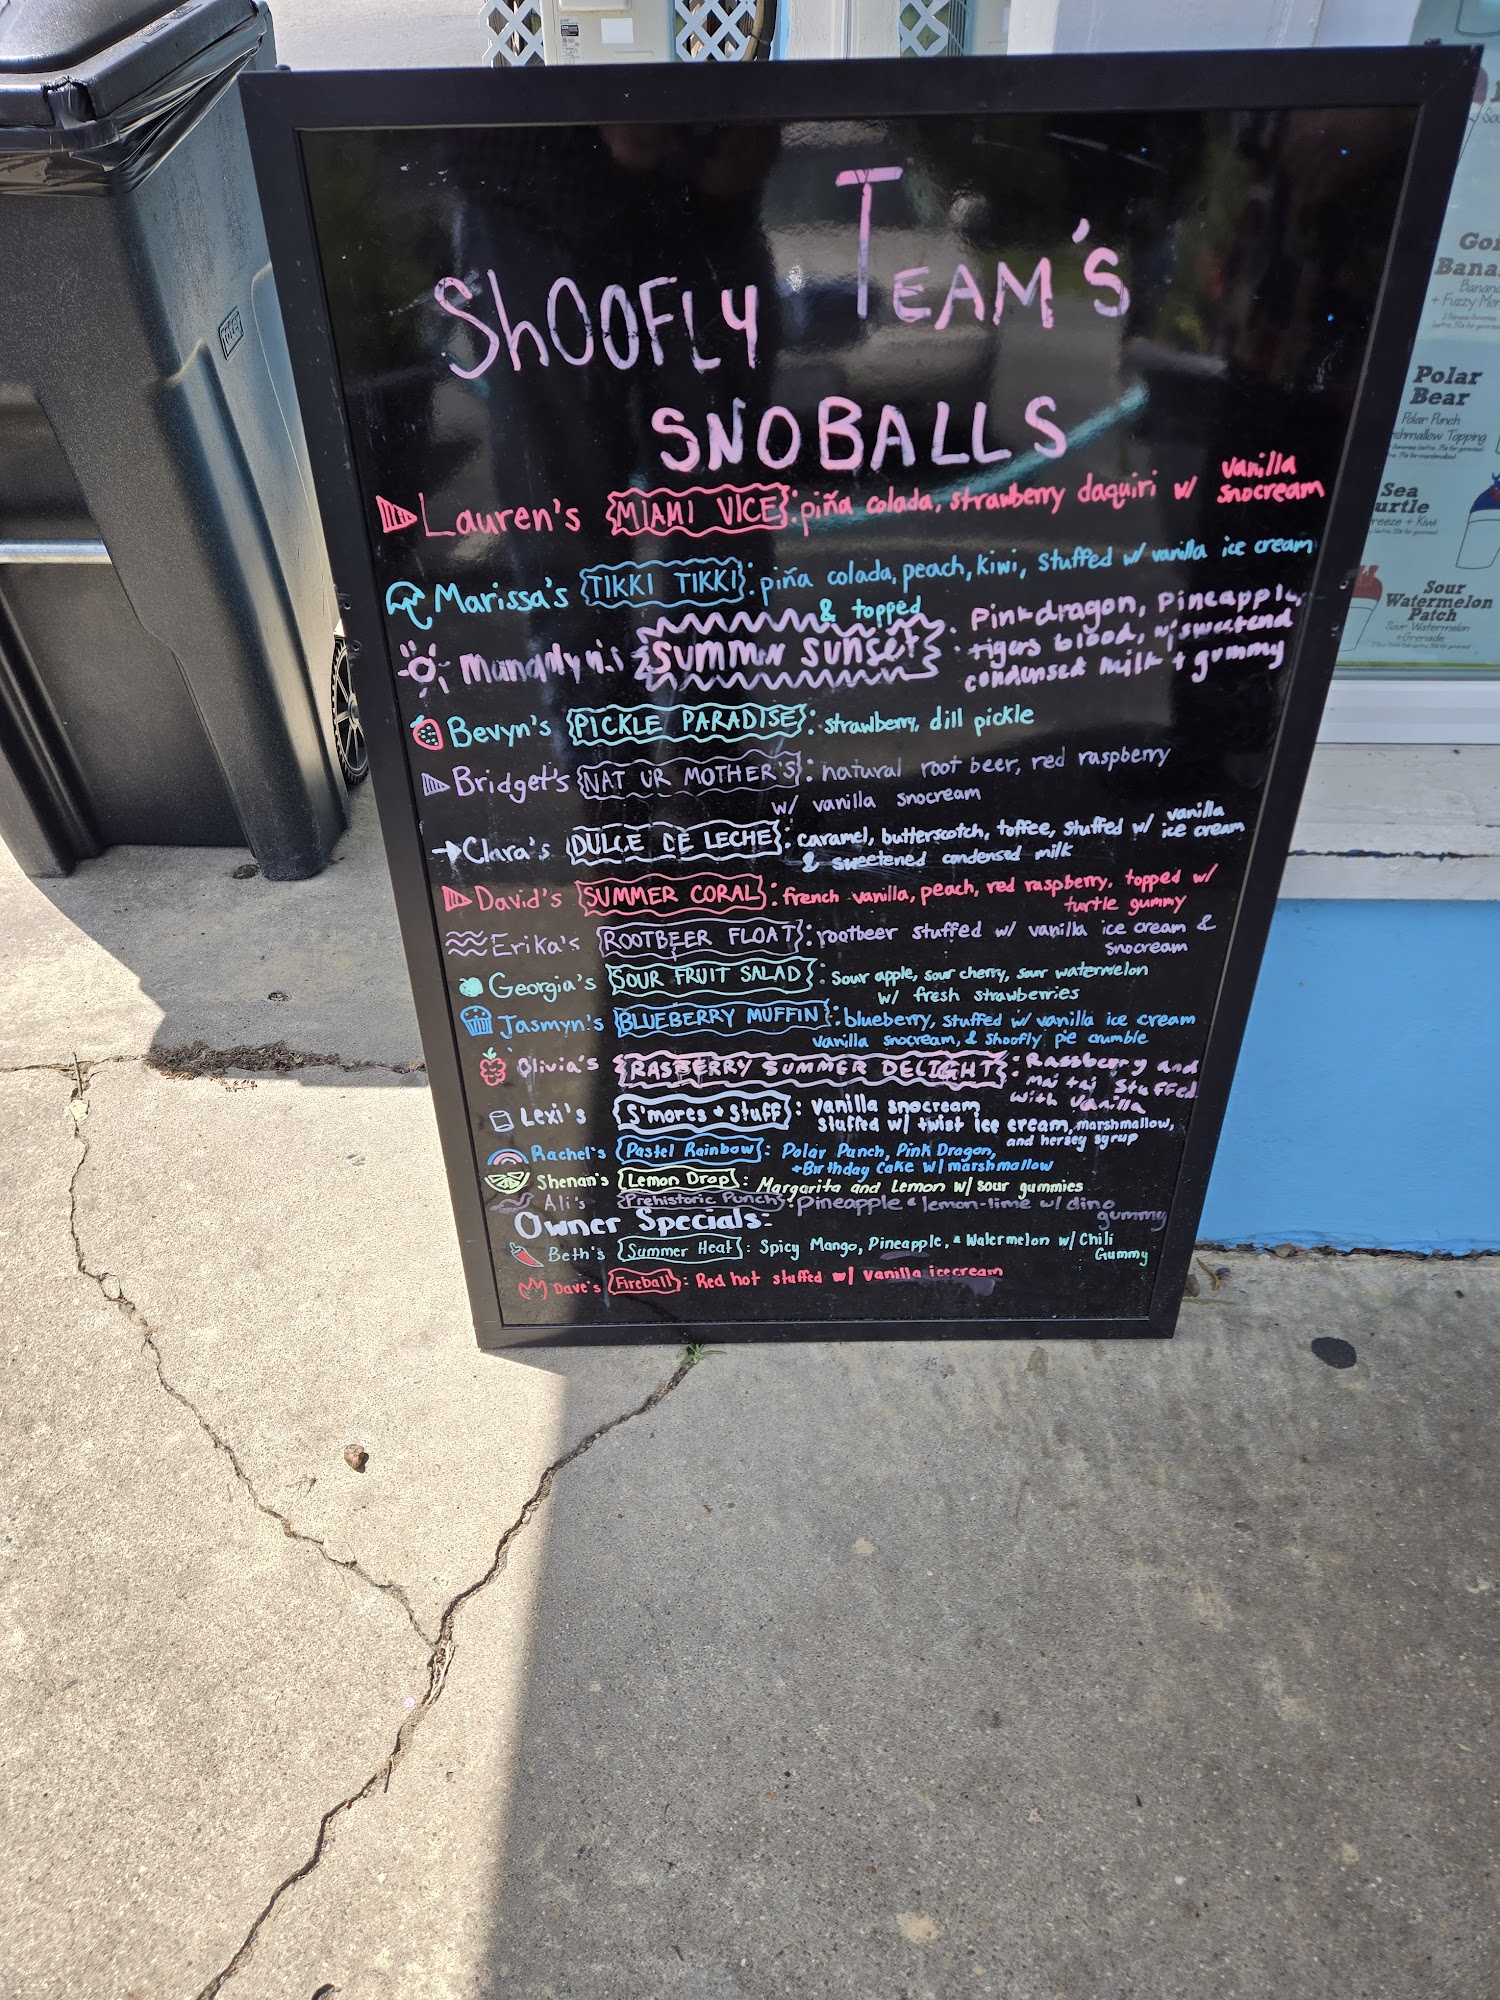 Shoofly Team's
SNOBALLS
Lauren's MIAMI VICE: piña colada, strawberry daquiri w/ vanilla snocream
Marissa's TIKKI TIKKI: piña colada, peach, kiwi, stuffed w/ vanilla ice cream
& topped
summer sunset: Pink dragon, Pineapple,
tigers blood, w/ sweetend
condensed milk + gummy
Bevyn's PICKLE PARADISE: strawberry, dill pickle
Bridget's NAT UR MOTHER'S: natural root beer, red raspberry
w/ vanilla snocream
Clara's DULCE DE LECHE: caramel, butterscotch, toffee, stuffed w/ vanilla ice cream
& sweetened condensed milk
David's SUMMER CORAL: french vanilla, peach, red raspberry, topped w/
turtle gummy
Erika's ROOTBEER FLOAT: rootbeer stuffed w/ vanilla ice cream &
snocream
Georgia's SOUR FRUIT SALAD: sour apple, sour cherry, sour watermelon
w/ fresh strawberries
Jasmyn's BLUEBERRY MUFFIN: blueberry, stuffed w/ vanilla ice cream
vanilla snocream, & shoofly pie crumble
Olivia's RASBERRY SUMMER DELIGHT: Raspberry and
mai tai stuffed
with vanilla
Lexi's S'mores + Stuff: Vanilla snocream
stuffed w/ twist ice cream, marshmallow,
and hersey syrup
Rachel's Pastel Rainbow: Polar Punch, Pink Dragon,
+Birthday Cake w/ marshmallow
Shenan's Lemon Drop: Margarita and Lemon w/ sour gummies
Ali's Prehistoric Punch: Pineapple & lemon-lime w/ dino
gummy
Owner Specials:
Beth's Summer Heat: Spicy Mango, Pineapple, & Watermelon w/ Chili
Gummy
Dave's Fireball: Red hot stuffed w/ vanilla icecream
Polar
Bear
Polar Punch
Topping
Sea
+ Kiwi
Sour
Watermelon
Patch
Sour Watermelon
+Grenade